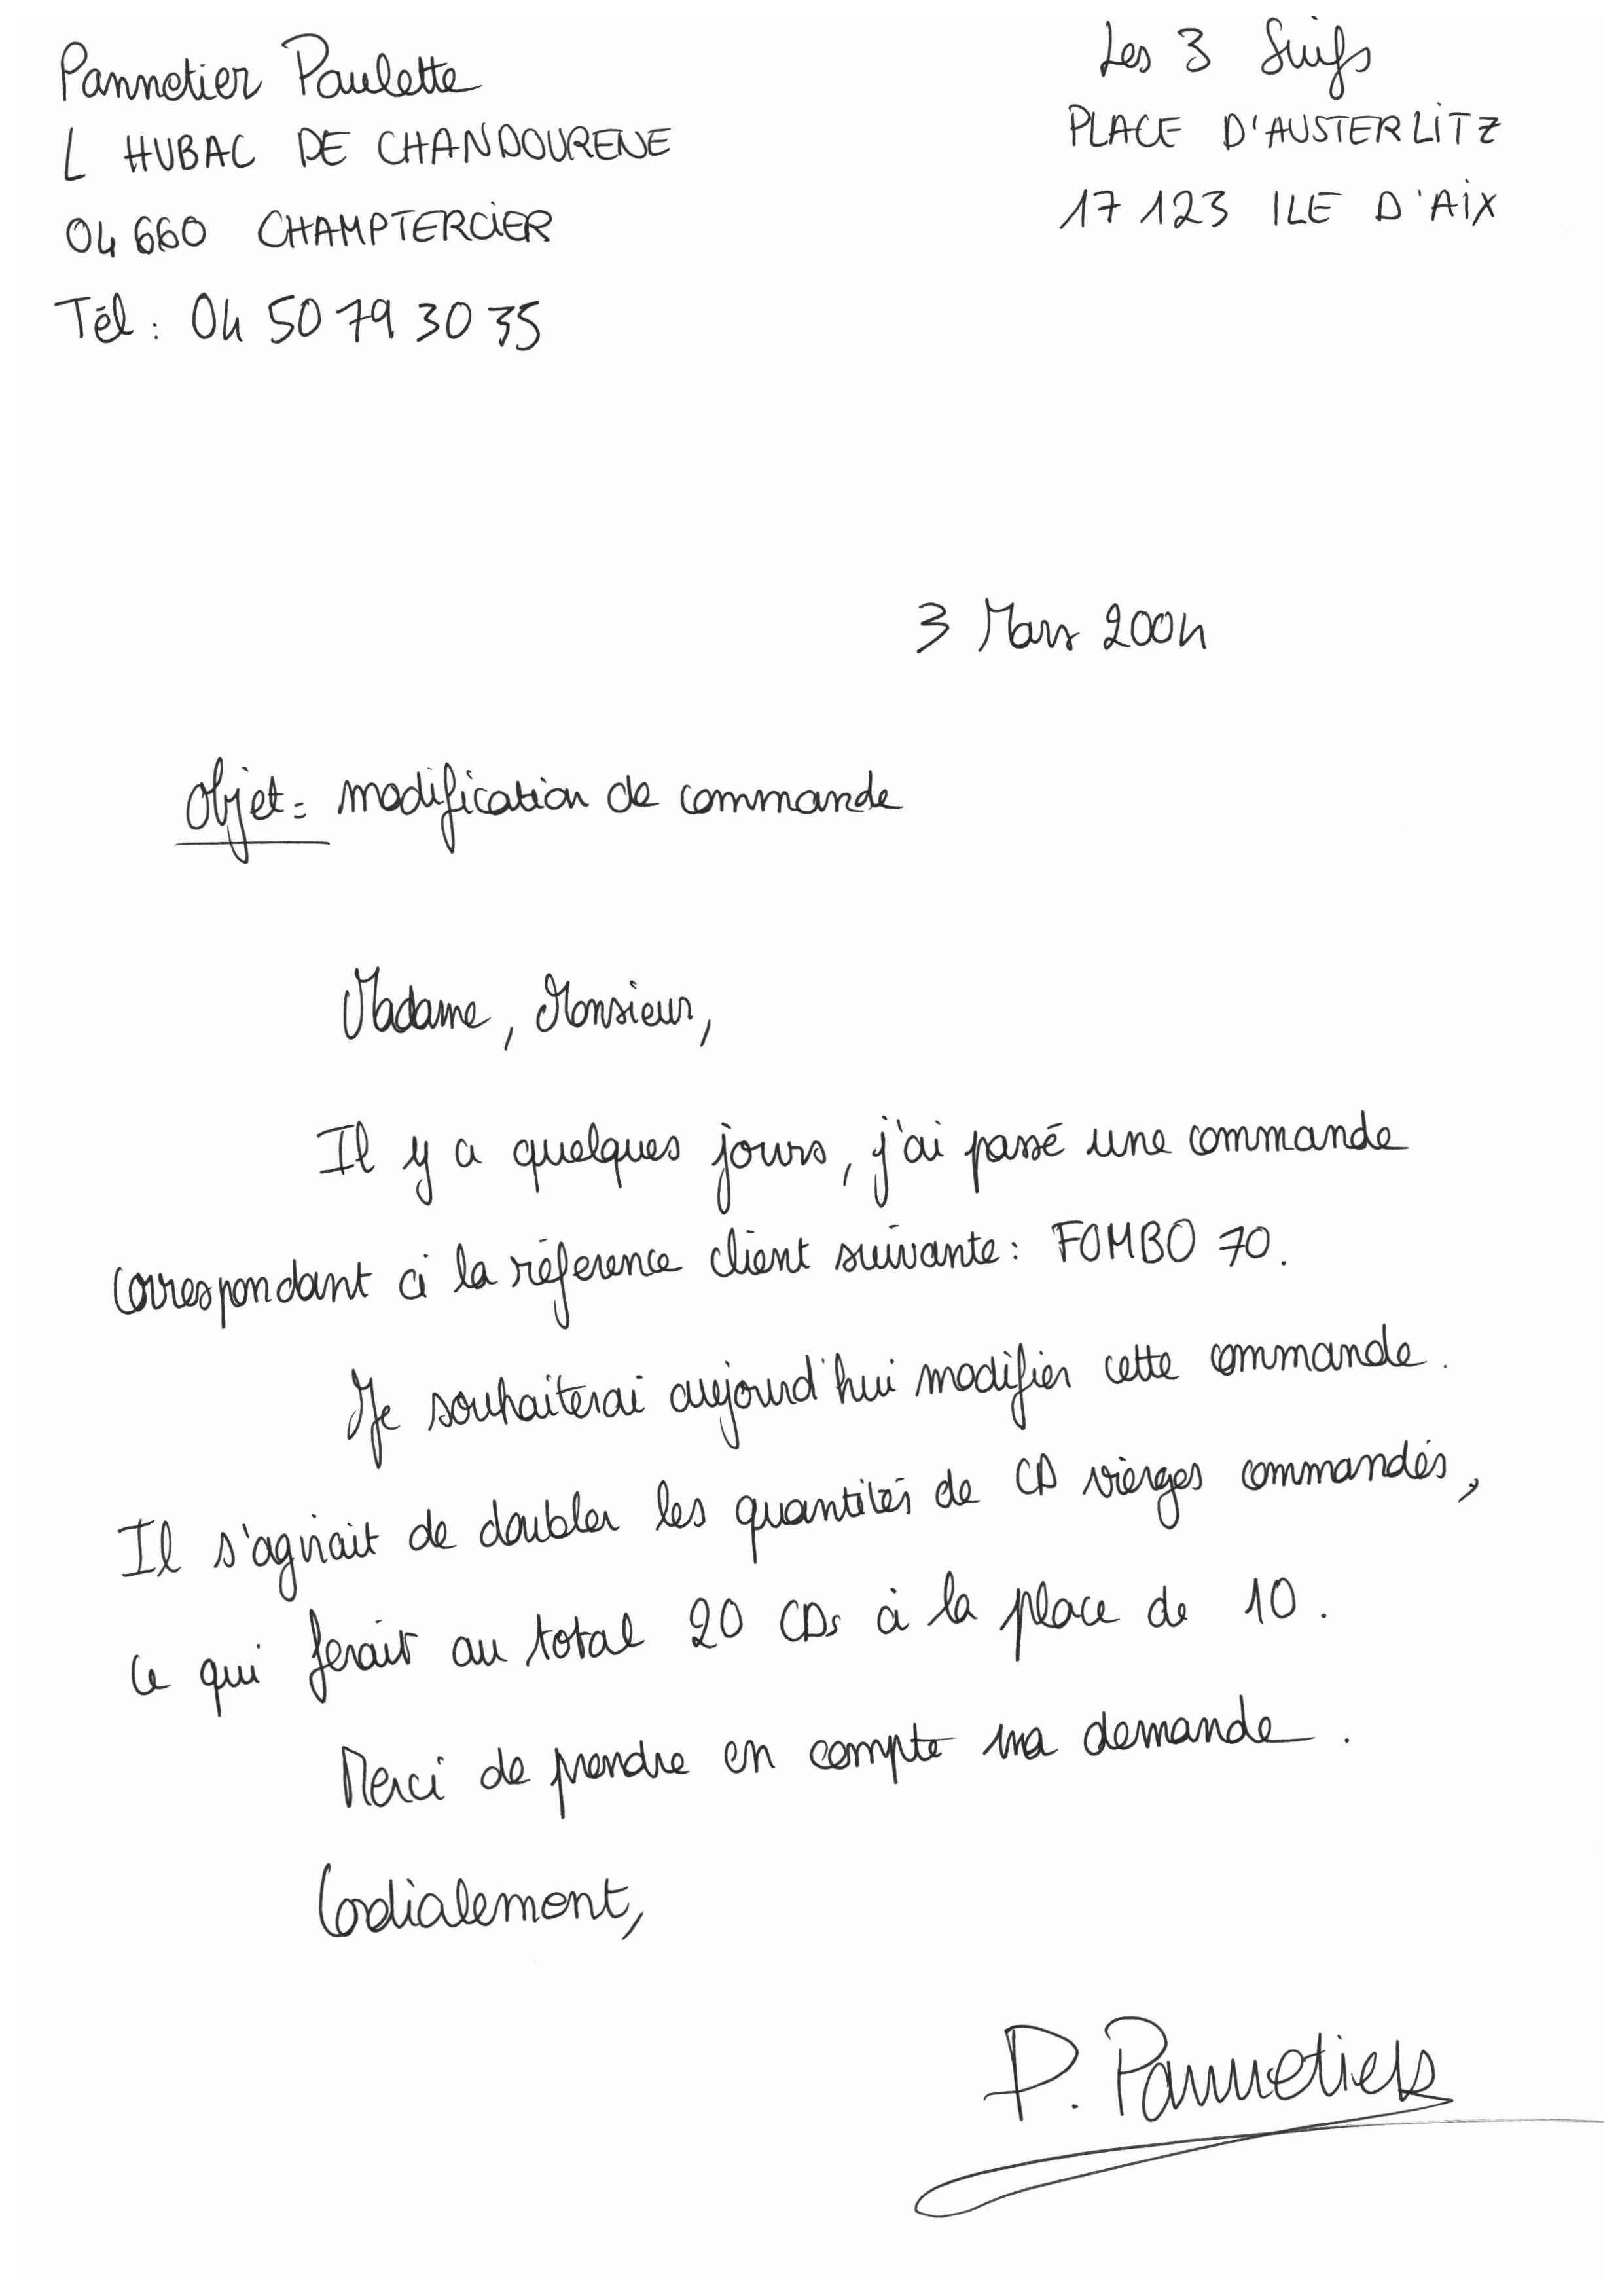 Pannetier Paulette
L HUBAC DE CHANDOURENE
04 660 CHAMPTERCIER
Tél : 04 50 79 30 35
Les 3 Suifs
PLACE D'AUSTERLITZ
17 123 ILE D'AIX
3 Mars 2004
Objet : modification de commande
Madame, Monsieur,
Il y a quelques jours, j'ai passé une commande
correspondant à la réference client suivante : FOMBO 70.
Je souhaiterai aujourd'hui modifier cette commande.
Il s'agirait de doubler les quantités de CD vierges commandés,
ce qui ferait au total 20 CDs à la place de 10.
Merci de prendre en compte ma demande.
Cordialement,
P. Pannetier